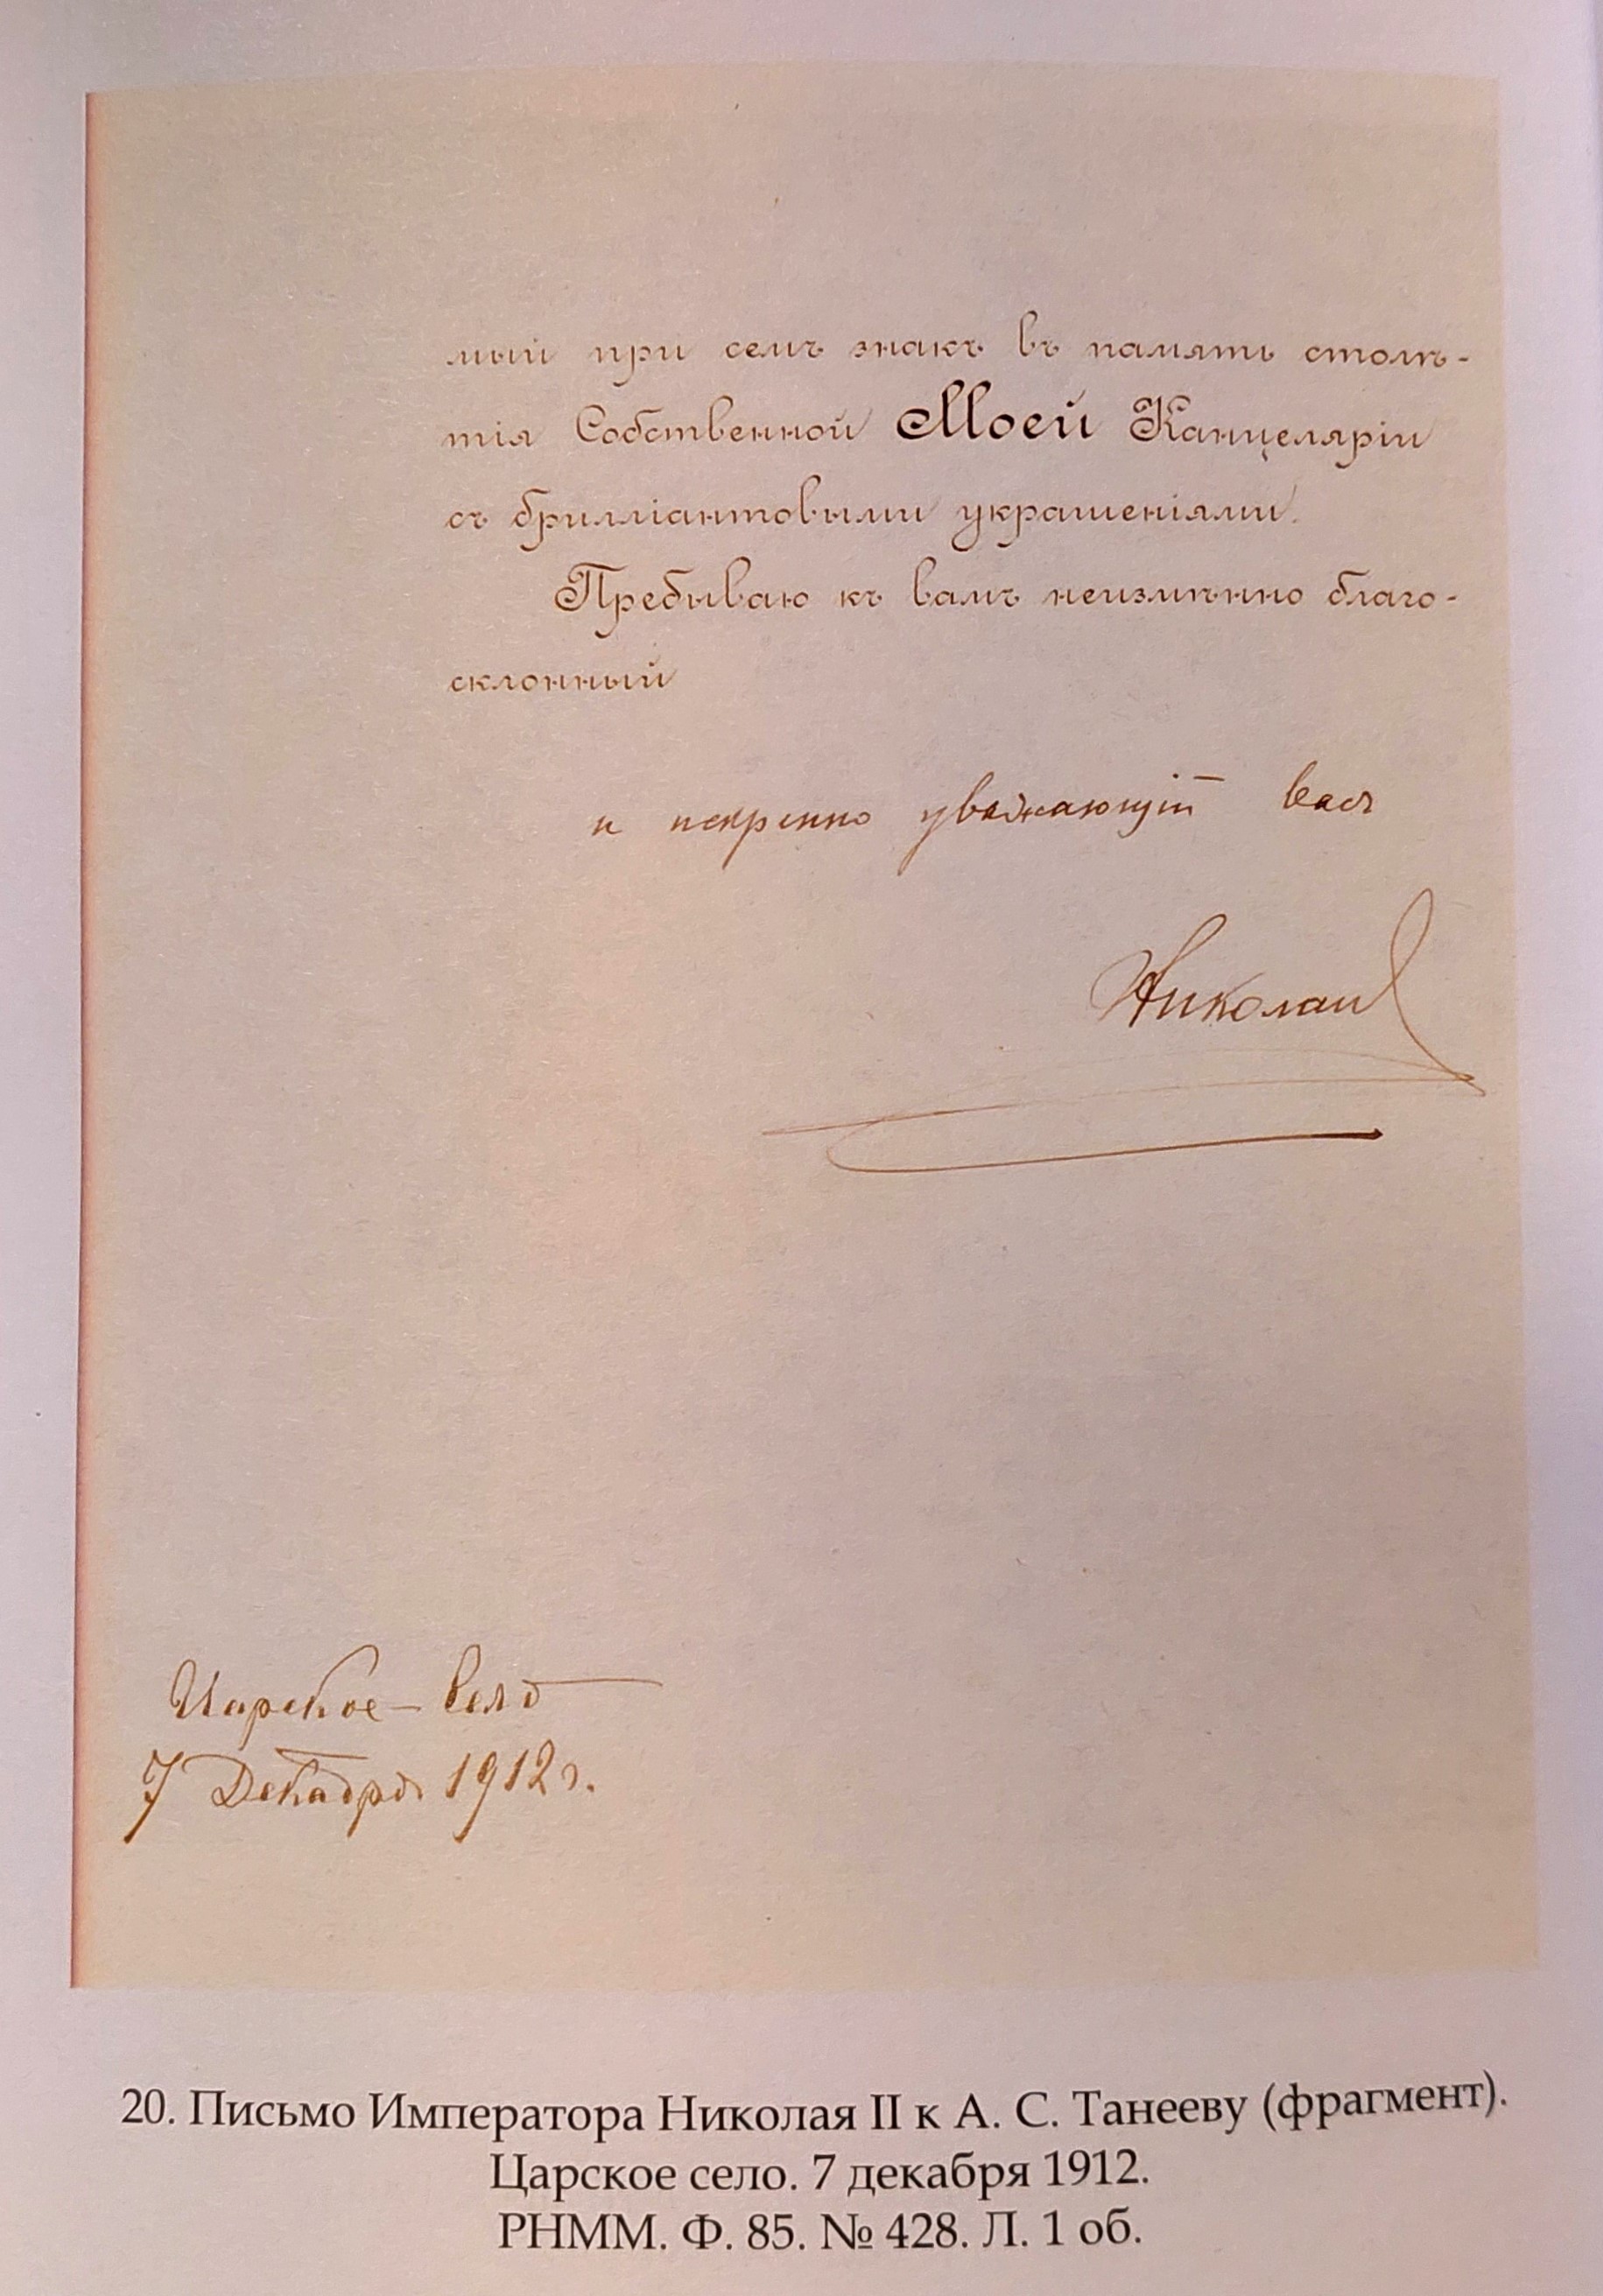 мый при семъ знакъ въ память столѣ-
тія Собственной Моей Канцеляріи
съ брилліантовыми украшеніями.
Пребываю къ вамъ неизмѣнно благо-
склонный
и искренно уважающій васъ
Николай
Царское-Село
7 Декабря 1912 г.
20. Письмо Императора Николая II к А. С. Танееву (фрагмент).
Царское село. 7 декабря 1912.
РНММ. Ф. 85. № 428. Л. 1 об.